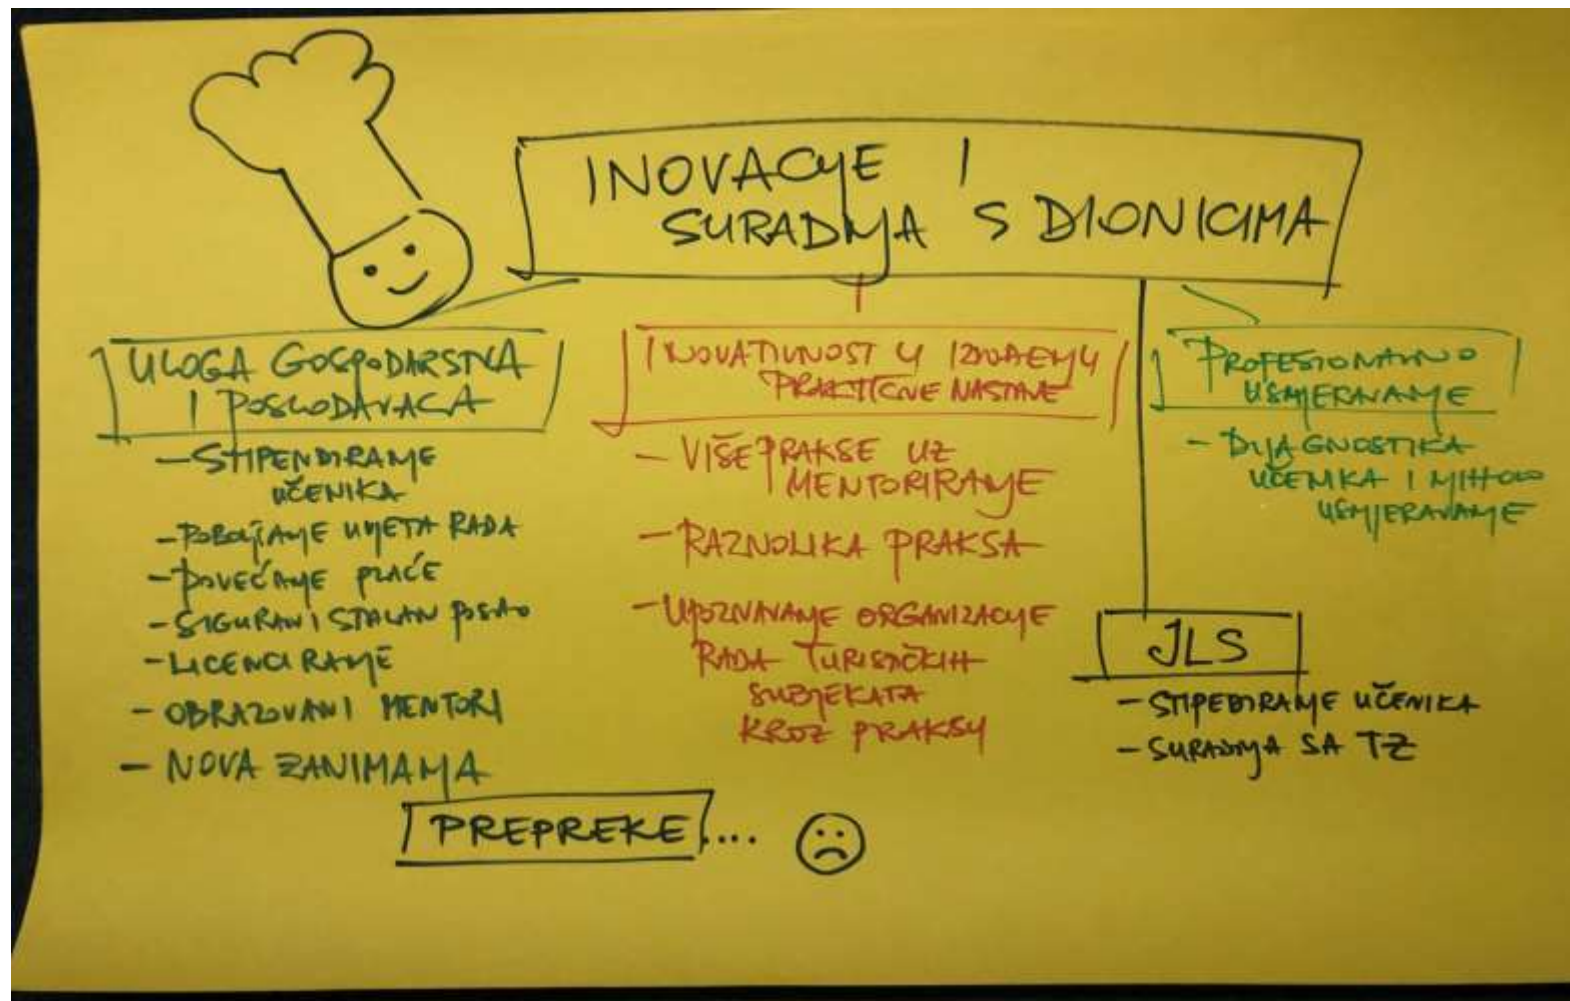 INOVACIJE I
SURADNJA S DIONICIMA
ULOGA GOSPODARSTVA
I POSLODAVACA
- STIPENDIRANJE
UČENIKA
- POBOLJŠANJE UVJETA RADA
- POVEĆANJE PLAĆE
- SIGURAN I STALAN POSAO
- LICENCIRANJE
- OBRAZOVANI MENTORI
- NOVA ZANIMANJA
INOVATIVNOST U IZVOĐENJU
PRAKTIČNE NASTAVE
- VIŠE PRAKSE UZ
MENTORIRANJE
- RAZNOLIKA PRAKSA
- UPOZNAVANJE ORGANIZACIJE
RADA TURISTIČKIH
SUBJEKATA
KROZ PRAKSU
PROFESIONALNO
USMJERAVANJE
- DIJAGNOSTIKA
UČENIKA I NJIHOVO
USMJERAVANJE
JLS
- STIPEDIRANJE UČENIKA
- SURADNJA SA TZ
PREPREKE....